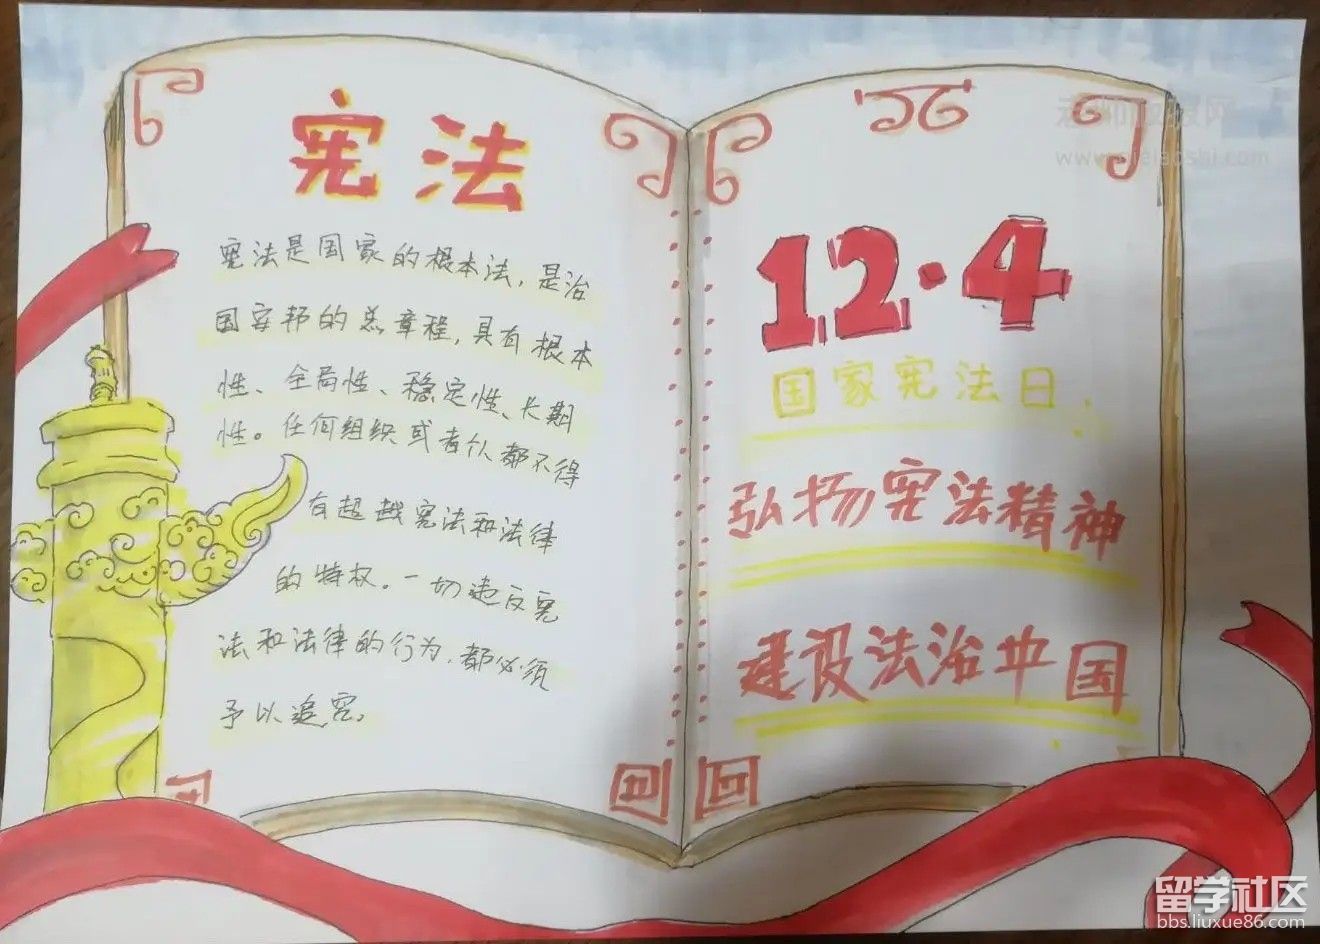 宪法
宪法是国家的根本法，是治
国安邦的总章程，具有根本
性、全局性、稳定性、长期
性。任何组织或者个人都不得
有超越宪法和法律
的特权。一切违反宪
法和法律的行为，都必须
予以追究。
12·4
国家宪法日
弘扬宪法精神
建设法治中国
留学社区
bbs.liuxue86.com